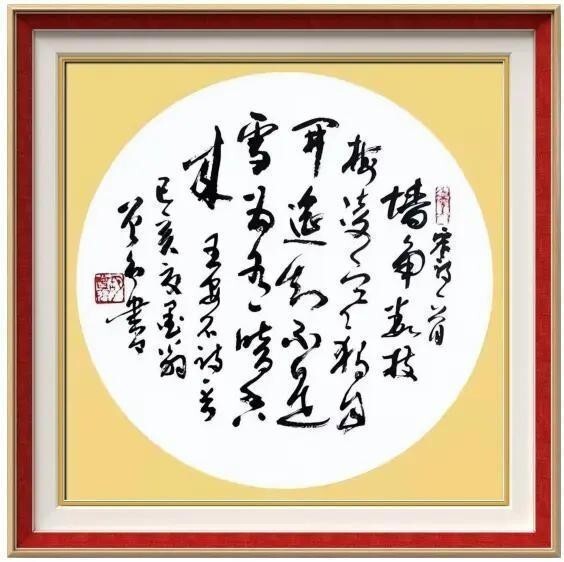 宋诗一首
墙角数枝
梅凌寒独自
开遥知不是
雪为有暗香
来
王安石诗
己亥夏墨翁
书